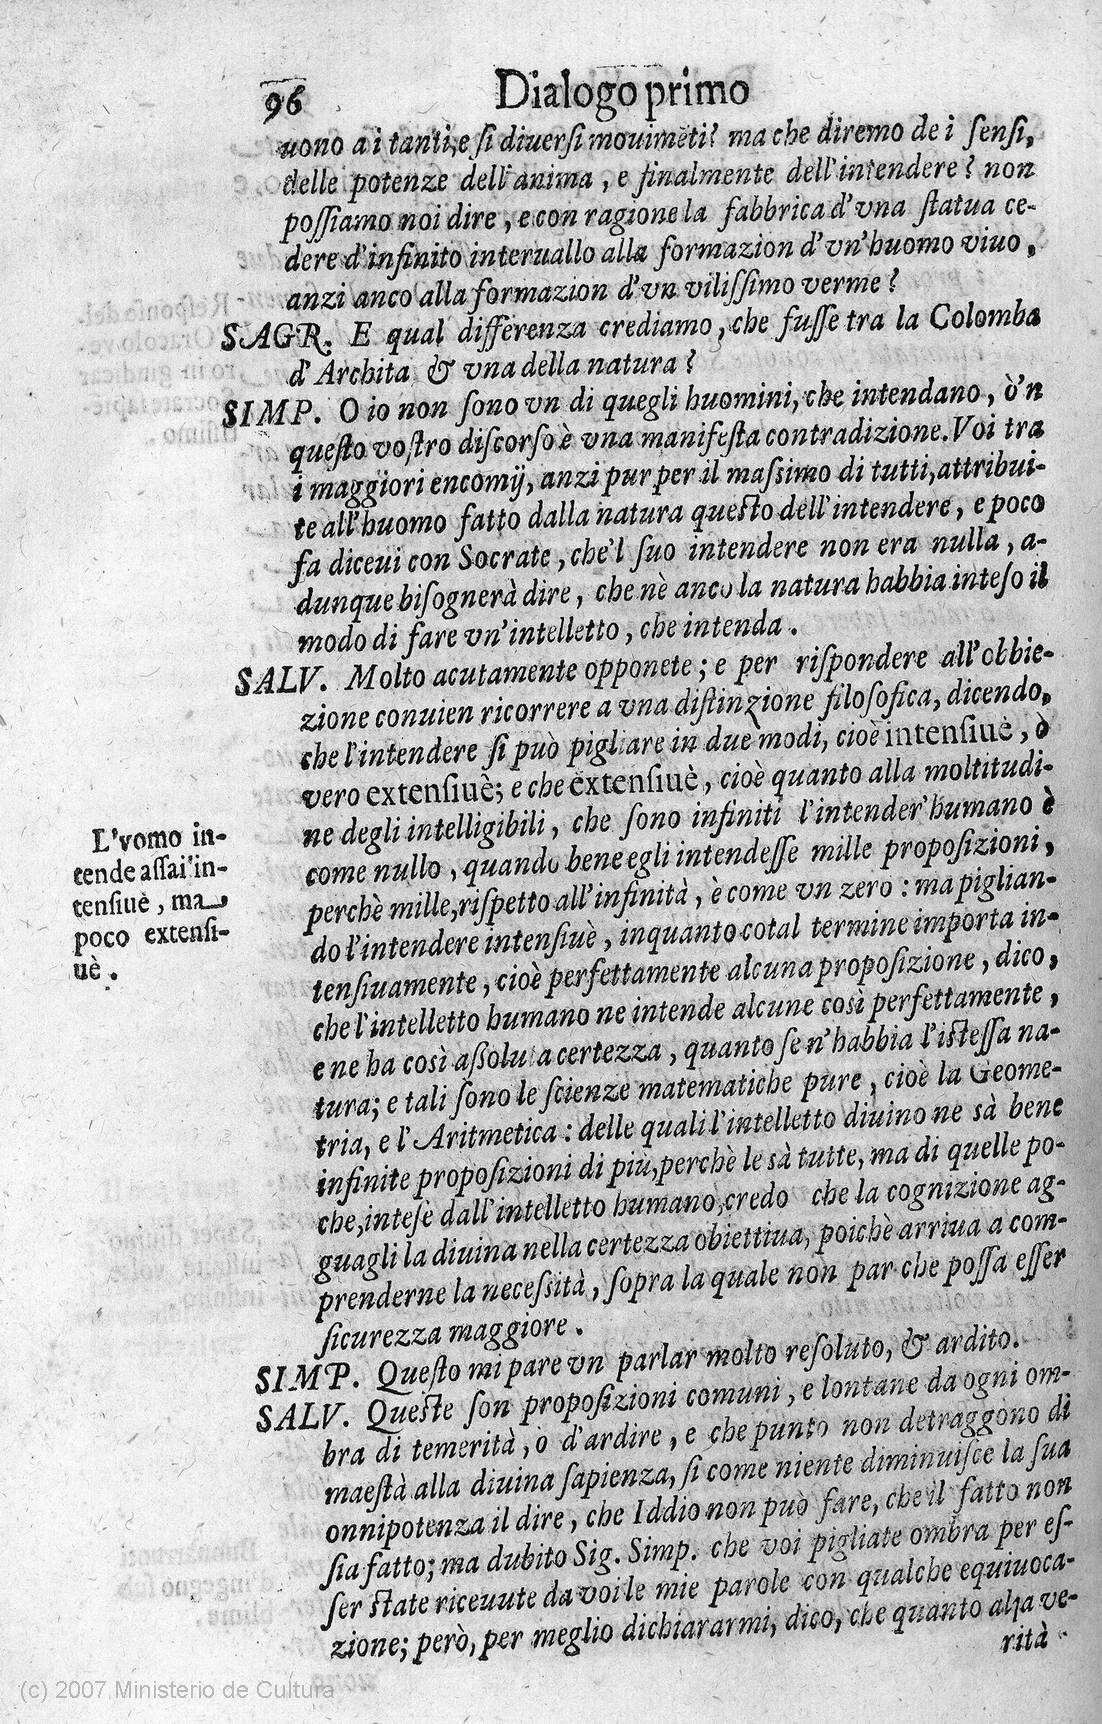 96
Dialogo primo
uono a i tanti, e si diuersi mouimẽti? ma che diremo de i ſenſi,
delle potenze dell'anima, e finalmente dell'intendere? non
poſſiamo noi dire, e con ragione la fabbrica d'vna ſtatua ce-
dere d'infinito interuallo alla formazion d'vn'huomo viuo,
anzi anco alla formazion d'vn viliſſimo verme?
SAGR. E qual differenza crediamo, che fuſſe tra la Colomba
d'Archita & vna della natura?
SIMP. O io non ſono vn di quegli huomini, che intendano, ò'n
queſto voſtro diſcorſo è vna manifeſta contradizione. Voi tra
i maggiori encomij, anzi pur per il maſsimo di tutti, attribui-
te all'huomo fatto dalla natura queſto dell'intendere, e poco
fa diceui con Socrate, che'l ſuo intendere non era nulla, a-
dunque biſognerà dire, che nè anco la natura habbia inteſo il
modo di fare vn'intelletto, che intenda.
SALV. Molto acutamente opponete; e per riſpondere all'obbie-
zione conuien ricorrere a vna diſtinzione filoſofica, dicendo,
che l'intendere ſi può pigliare in due modi, cioè intenſiuè, ò
vero extenſiuè; e che extenſiuè, cioè quanto alla moltitudi-
ne degli intelligibili, che ſono infiniti l'intender'humano è
come nullo, quando bene egli intendeſſe mille propoſizioni,
perchè mille, riſpetto all'infinità, è come vn zero: ma piglian-
do l'intendere intenſiuè, inquanto cotal termine importa in-
tenſiuamente, cioè perfettamente alcuna propoſizione, dico,
che l'intelletto humano ne intende alcune così perfettamente,
e ne ha così aſſoluta certezza, quanto ſe n'habbia l'iſteſſa na-
tura; e tali ſono le ſcienze matematiche pure, cioè la Geome-
tria, e l'Aritmetica: delle quali l'intelletto diuino ne sà bene
infinite propoſizioni di più, perchè le sà tutte, ma di quelle po-
che, inteſe dall'intelletto humano, credo che la cognizione ag-
guagli la diuina nella certezza obiettiua, poichè arriua a com-
prenderne la neceſsità, ſopra la quale non par che poſſa eſſer
ſicurezza maggiore.
SIMP. Queſto mi pare vn parlar molto reſoluto, & ardito.
SALV. Queſte ſon propoſizioni comuni, e lontane da ogni om-
bra di temerità, o d'ardire, e che punto non detraggono di
maeſtà alla diuina ſapienza, ſi come niente diminuiſce la ſua
onnipotenza il dire, che Iddio non può fare, che il fatto non
ſia fatto; ma dubito Sig. Simp. che voi pigliate ombra per eſ-
ſer ſtate riceuute da voi le mie parole con qualche equiuoca-
zione; però, per meglio dichiararmi, dico, che quanto alla ve-
rità
L'vomo in-
tende aſſai'in-
tenſiuè, ma
poco extenſi-
uè.
(c) 2007 Ministerio de Cultura